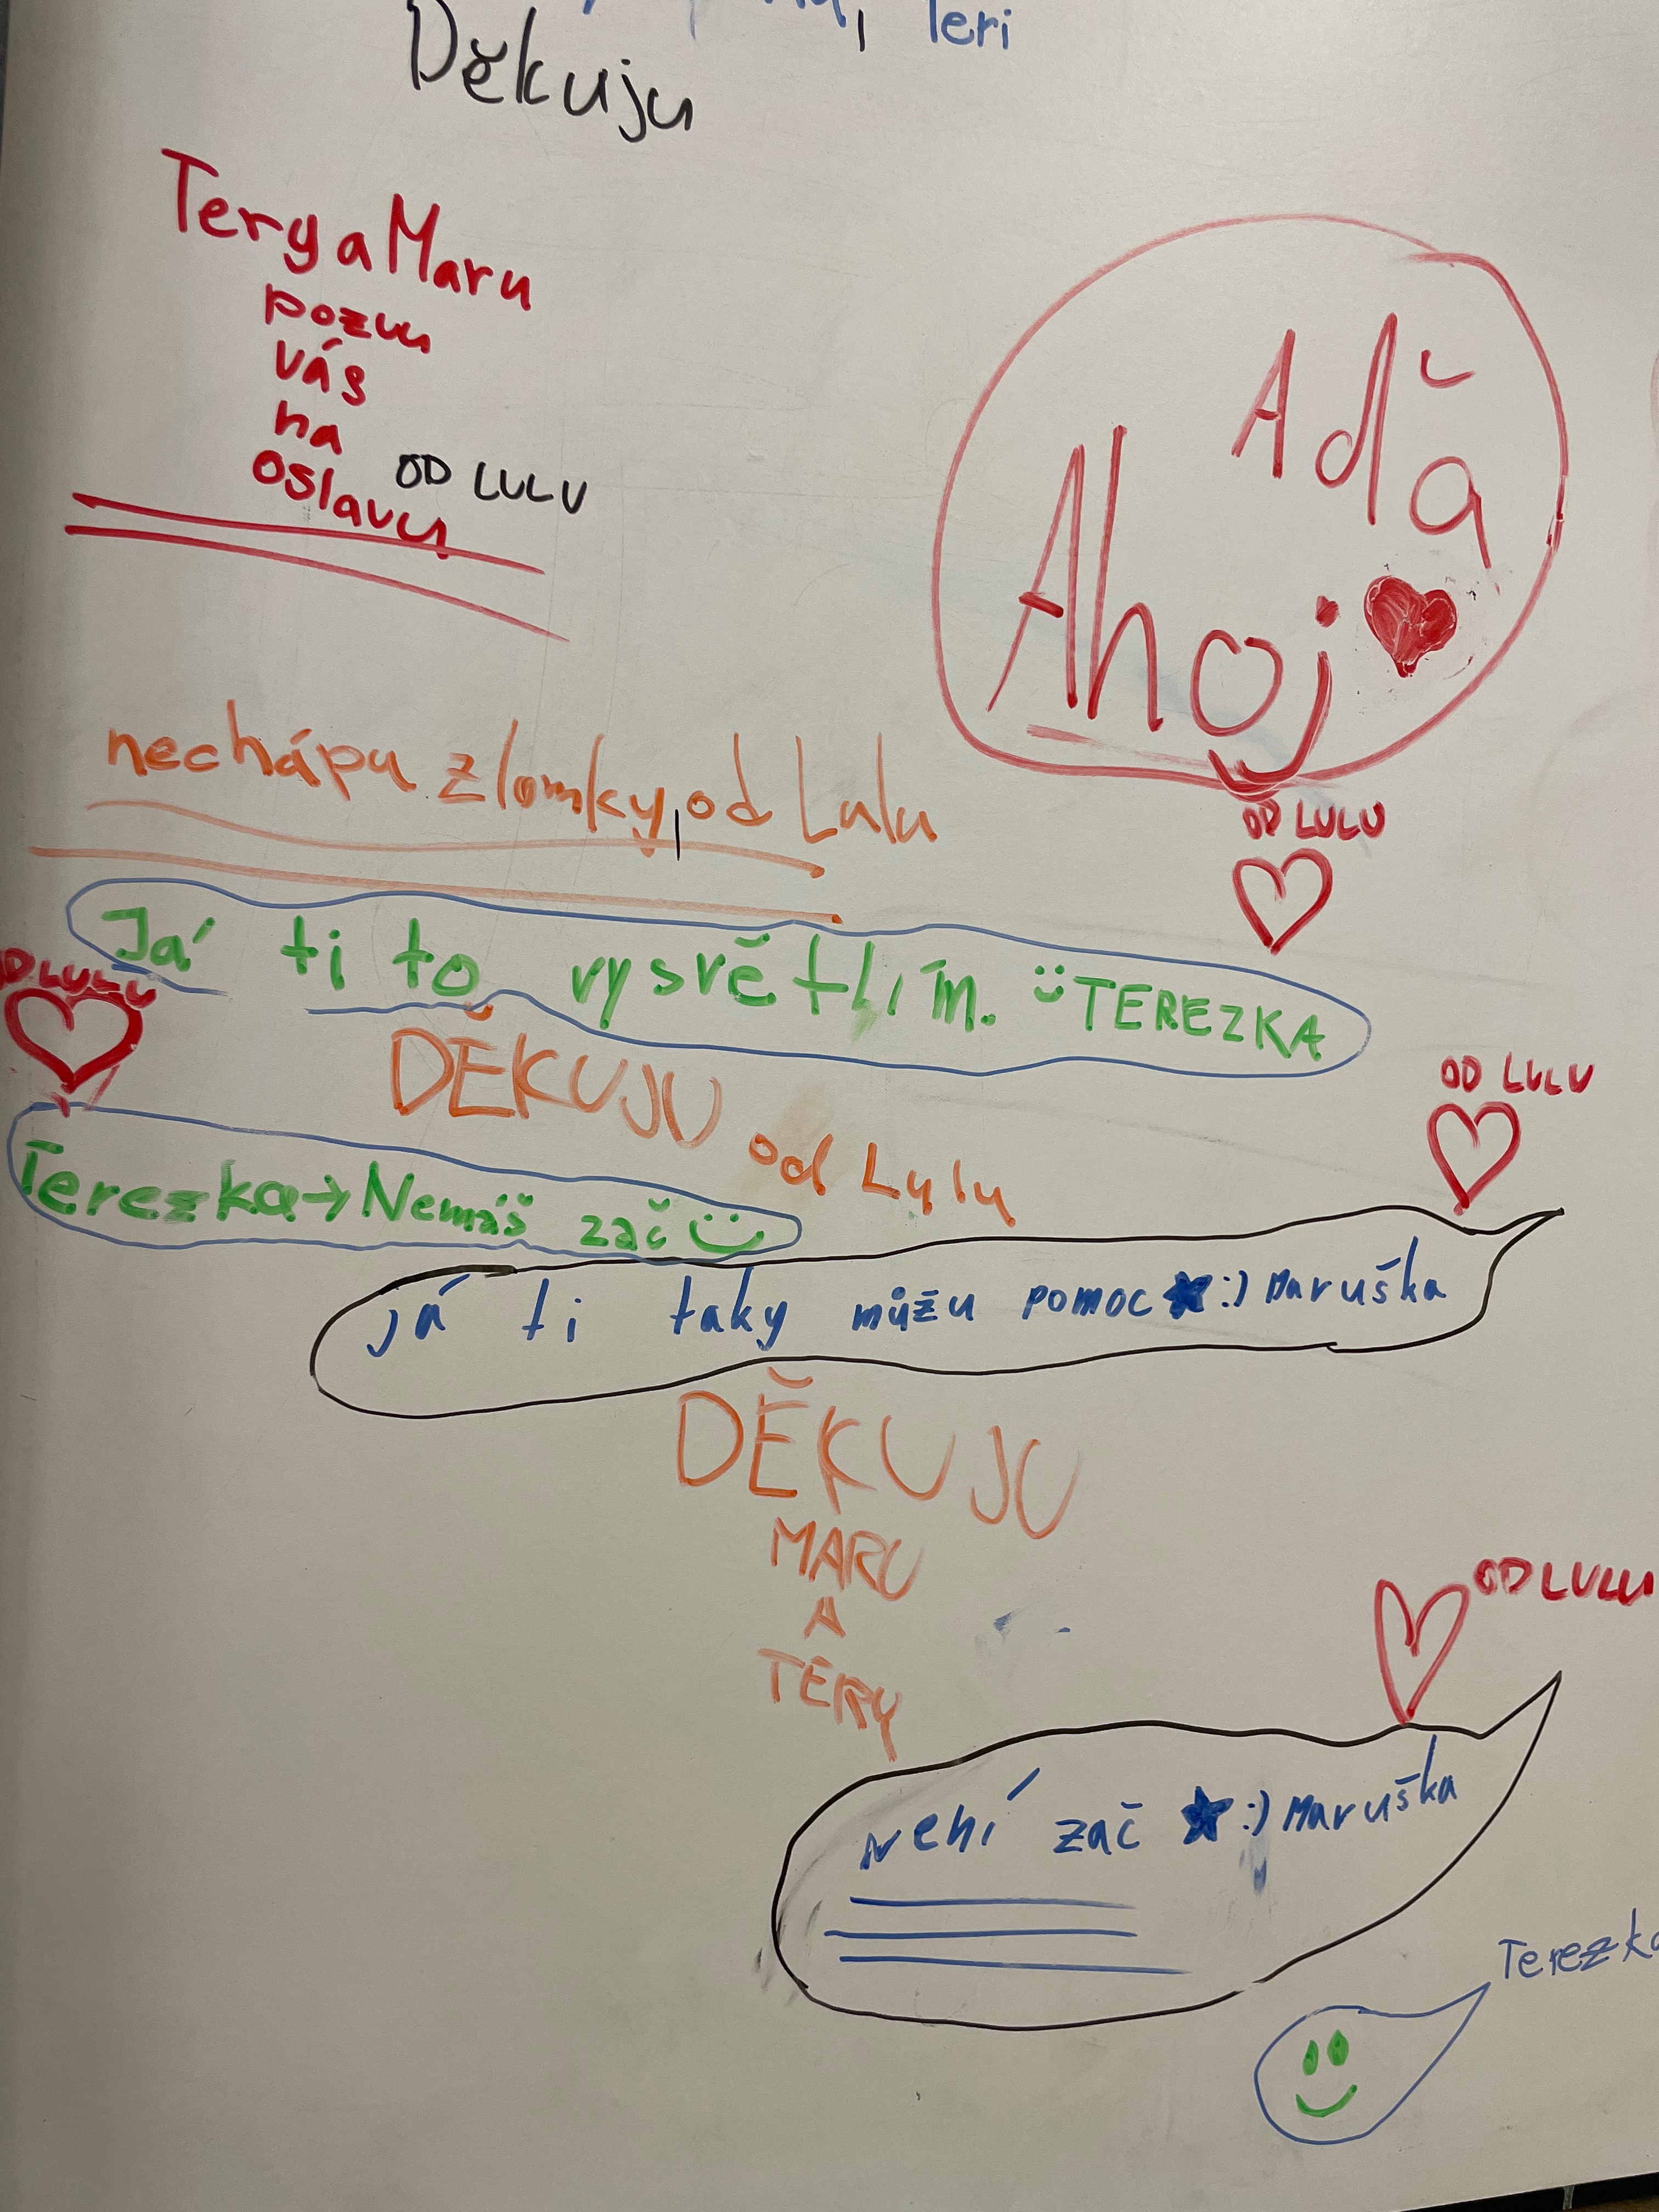 Teri
Děkuju
Tery a Maru
pozvu
vás
na
oslavu
OD LULU
Aďa
Ahoj
OD LULU
nechápu zlomky, od Lulu
Já ti to vysvětlím. TEREZKA
OD LULU
DĚKUJU
od Lulu
OD LULU
Terezka → Nemáš zač
já ti taky můžu pomoc ★ :) Maruška
DĚKUJU
MARU
A
TERY
OD LULU
Není zač ★ :) Maruška
Terezka